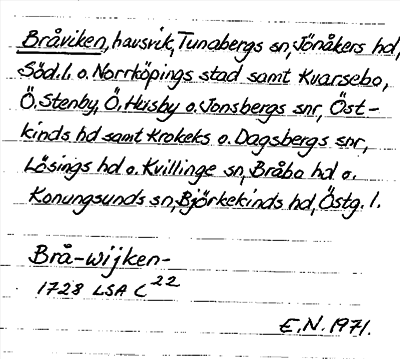 Bråviken, havsvik, Tunabergs sn, Jönåkers hd,
Söd. l. o. Norrköpings stad samt Kvarsebo,
Ö. Stenby, Ö. Husby o. Jonsbergs snr, Öst-
kinds hd samt Krokeks o. Dagsbergs snr,
Lösings hd o. Kvillinge sn, Bråbo hd o.
Konungsunds sn, Björkekinds hd, Östg. l.
Brå-wijken-
1728 LSA C 22
E.N. 1971.